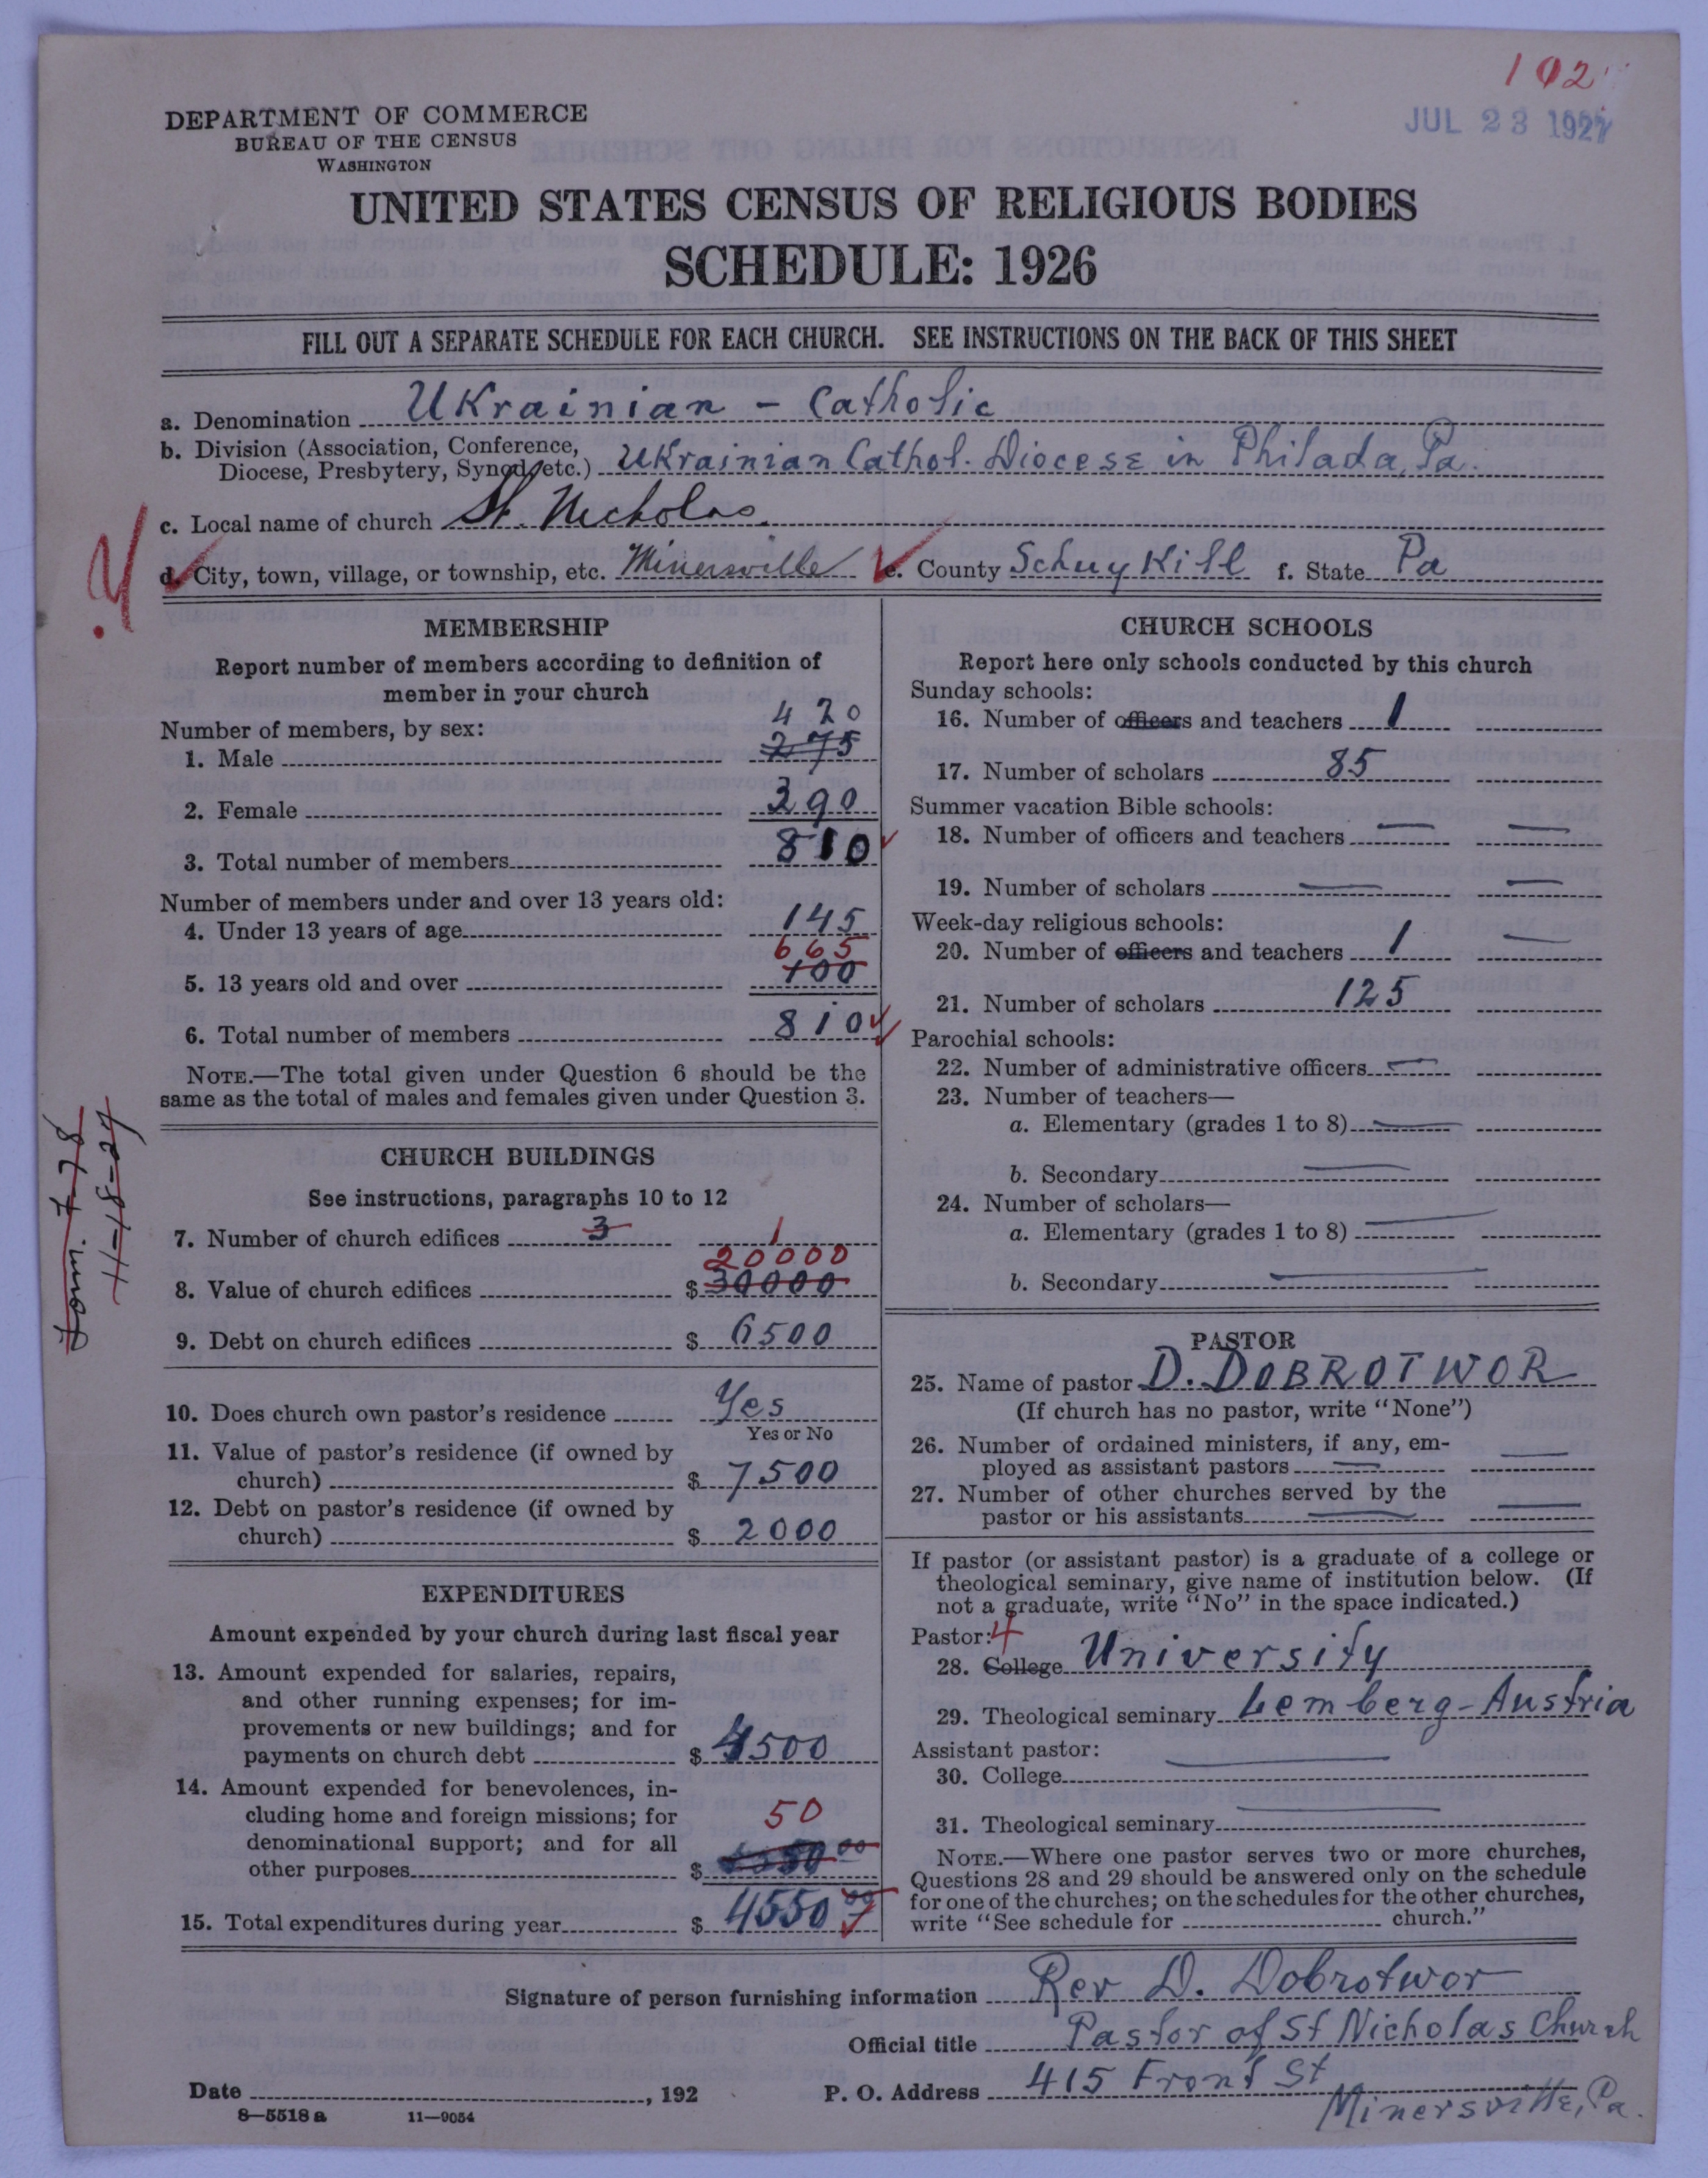 102
JUL 23 1927
DEPARTMENT OF COMMERCE
BUREAU OF THE CENSUS
WASHINGTON
UNITED STATES CENSUS OF RELIGIOUS BODIES
SCHEDULE: 1926
FILL OUT A SEPARATE SCHEDULE FOR EACH CHURCH. SEE INSTRUCTIONS ON THE BACK OF THIS SHEET
a. Denomination Ukrainian - Catholic
b. Division (Association, Conference,
Diocese, Presbytery, Synod, etc.) Ukrainian Cathol. Diocese in Philada, Pa.
c. Local name of church St. Nicholas
d. City, town, village, or township, etc. Minersville e. County Schuykill f. State Pa
MEMBERSHIP
Report number of members according to definition of
member in your church
Number of members, by sex:
420
1. Male 275
2. Female 390
3. Total number of members 810
Number of members under and over 13 years old:
4. Under 13 years of age 145
665
5. 13 years old and over 100
6. Total number of members 810
NOTE.—The total given under Question 6 should be the
same as the total of males and females given under Question 3.
CHURCH BUILDINGS
See instructions, paragraphs 10 to 12
7. Number of church edifices 3 1
20000
8. Value of church edifices $ 30000
9. Debt on church edifices $ 6500
10. Does church own pastor's residence Yes
Yes or No
11. Value of pastor's residence (if owned by
church) $ 7500
12. Debt on pastor's residence (if owned by
church) $ 2000
EXPENDITURES
Amount expended by your church during last fiscal year
13. Amount expended for salaries, repairs,
and other running expenses; for im-
provements or new buildings; and for
payments on church debt $ 4500
14. Amount expended for benevolences, in-
cluding home and foreign missions; for 50
denominational support; and for all
other purposes $
15. Total expenditures during year $ 4550 00
CHURCH SCHOOLS
Report here only schools conducted by this church
Sunday schools:
16. Number of officers and teachers 1
17. Number of scholars 85
Summer vacation Bible schools:
18. Number of officers and teachers —
19. Number of scholars —
Week-day religious schools:
20. Number of officers and teachers 1
21. Number of scholars 125
Parochial schools:
22. Number of administrative officers —
23. Number of teachers—
a. Elementary (grades 1 to 8) —
b. Secondary —
24. Number of scholars—
a. Elementary (grades 1 to 8) —
b. Secondary —
PASTOR
25. Name of pastor D. DOBROTWOR
(If church has no pastor, write "None")
26. Number of ordained ministers, if any, em-
ployed as assistant pastors —
27. Number of other churches served by the
pastor or his assistants —
If pastor (or assistant pastor) is a graduate of a college or
theological seminary, give name of institution below. (If
not a graduate, write "No" in the space indicated.)
Pastor: 4
28. College University
29. Theological seminary Lemberg-Austria
Assistant pastor:
30. College —
31. Theological seminary —
NOTE.—Where one pastor serves two or more churches,
Questions 28 and 29 should be answered only on the schedule
for one of the churches; on the schedules for the other churches,
write "See schedule for church."
Signature of person furnishing information Rev D. Dobrotwor
Official title Pastor of St Nicholas Church
Date , 192 P. O. Address 415 Front St
Minersville, Pa.
8—5518 a 11—9054